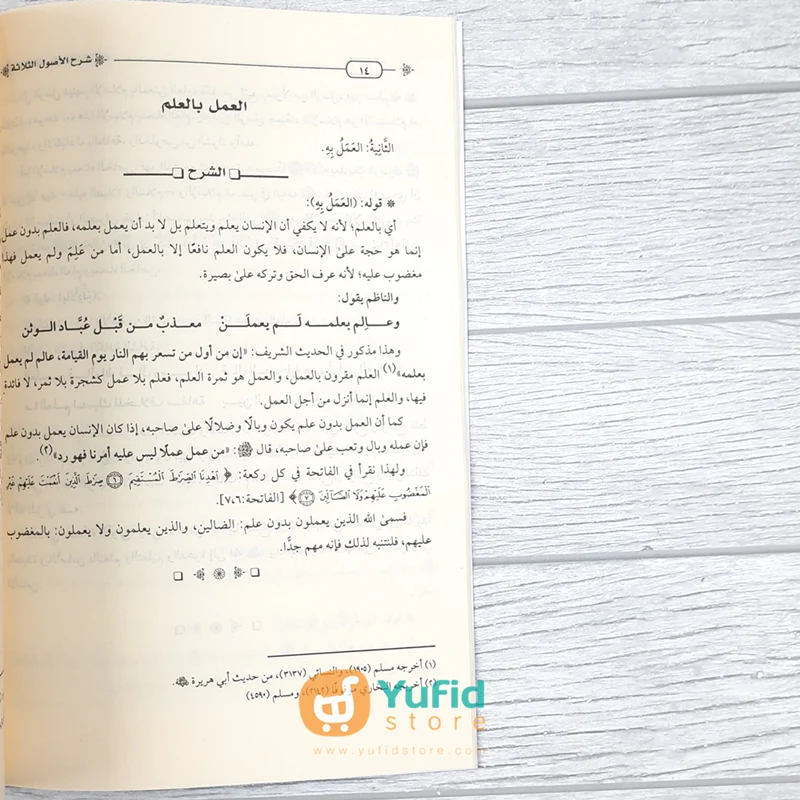 شرح الأصول الثلاثة
١٤
العمل بالعلم
الثَّانِيةُ: العَمَلُ بِهِ.
الشرح
* قوله: (العَمَلُ بِهِ):
أي بالعلم؛ لأنه لا يكفي أن الإنسان يعلم ويتعلم بل لا بد أن يعمل بعلمه، فالعلم بدون عمل
إنما هو حجة علىٰ الإنسان، فلا يكون العلم نافعًا إلا بالعمل، أما من عَلِمَ ولم يعمل فهذا
مغضوب عليه؛ لأنه عرف الحق وتركه علىٰ بصيرة.
والناظم يقول:
وعـالِم بعلمـه لَـم يعملَـنْ معذبٌ مـن قَبْل عُبَّاد الـوثن
وهذا مذكور في الحديث الشريف: «إن من أول من تسعر بهم النار يوم القيامة، عالم لم يعمل
بعلمه»(١) العلم مقرون بالعمل، والعمل هو ثمرة العلم، فعلم بلا عمل كشجرة بلا ثمر، لا فائدة
فيها، والعلم إنما أنزل من أجل العمل.
كما أن العمل بدون علم يكون وبالًا وضلالًا علىٰ صاحبه، إذا كان الإنسان يعمل بدون علم
فإن عمله وبال وتعب علىٰ صاحبه، قال ﷺ: «من عمل عملًا ليس عليه أمرنا فهو رد»(٢).
ولهذا نقرأ في الفاتحة في كل ركعة: ﴿ٱهْدِنَا ٱلصِّرَٰطَ ٱلْمُسْتَقِيمَ ۝٦ صِرَٰطَ ٱلَّذِينَ أَنْعَمْتَ عَلَيْهِمْ غَيْرِ
ٱلْمَغْضُوبِ عَلَيْهِمْ وَلَا ٱلضَّآلِّينَ ۝٧﴾ [الفاتحة:٧،٦].
فسمىٰ الله الذين يعملون بدون علم: الضالين، والذين يعلمون ولا يعملون: بالمغضوب
عليهم، فلنتنبه لذلك فإنه مهم جدًّا.
(١) أخرجه مسلم (١٩٠٥)، والنسائي (٣١٣٧)، من حديث أبي هريرة ﵁.
(٢) أخرجه البخاري (٢١٤٢)، ومسلم (٤٥٩٠)
Yufid
store
www.yufidstore.com